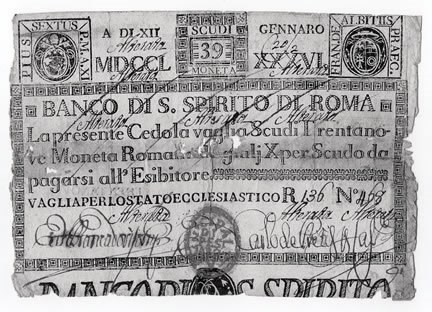 PIUS SEXTUS P.M.A.XI
A DI XII GENNARO
SCUDI 39 MONETA
MDCCLXXXVI
FRANC. DE ALBITIIS PRAEC.
BANCO DI S. SPIRITO DI ROMA
La presente Cedola vaglia Scudi Trentano-
ve Moneta Romana di Giulj X per Scudo da
pagarsi all'Esibitore
VAGLIA PER LO STATO ECCLESIASTICO R. 136 N.° 469
BANCO DI S. SPIRITO